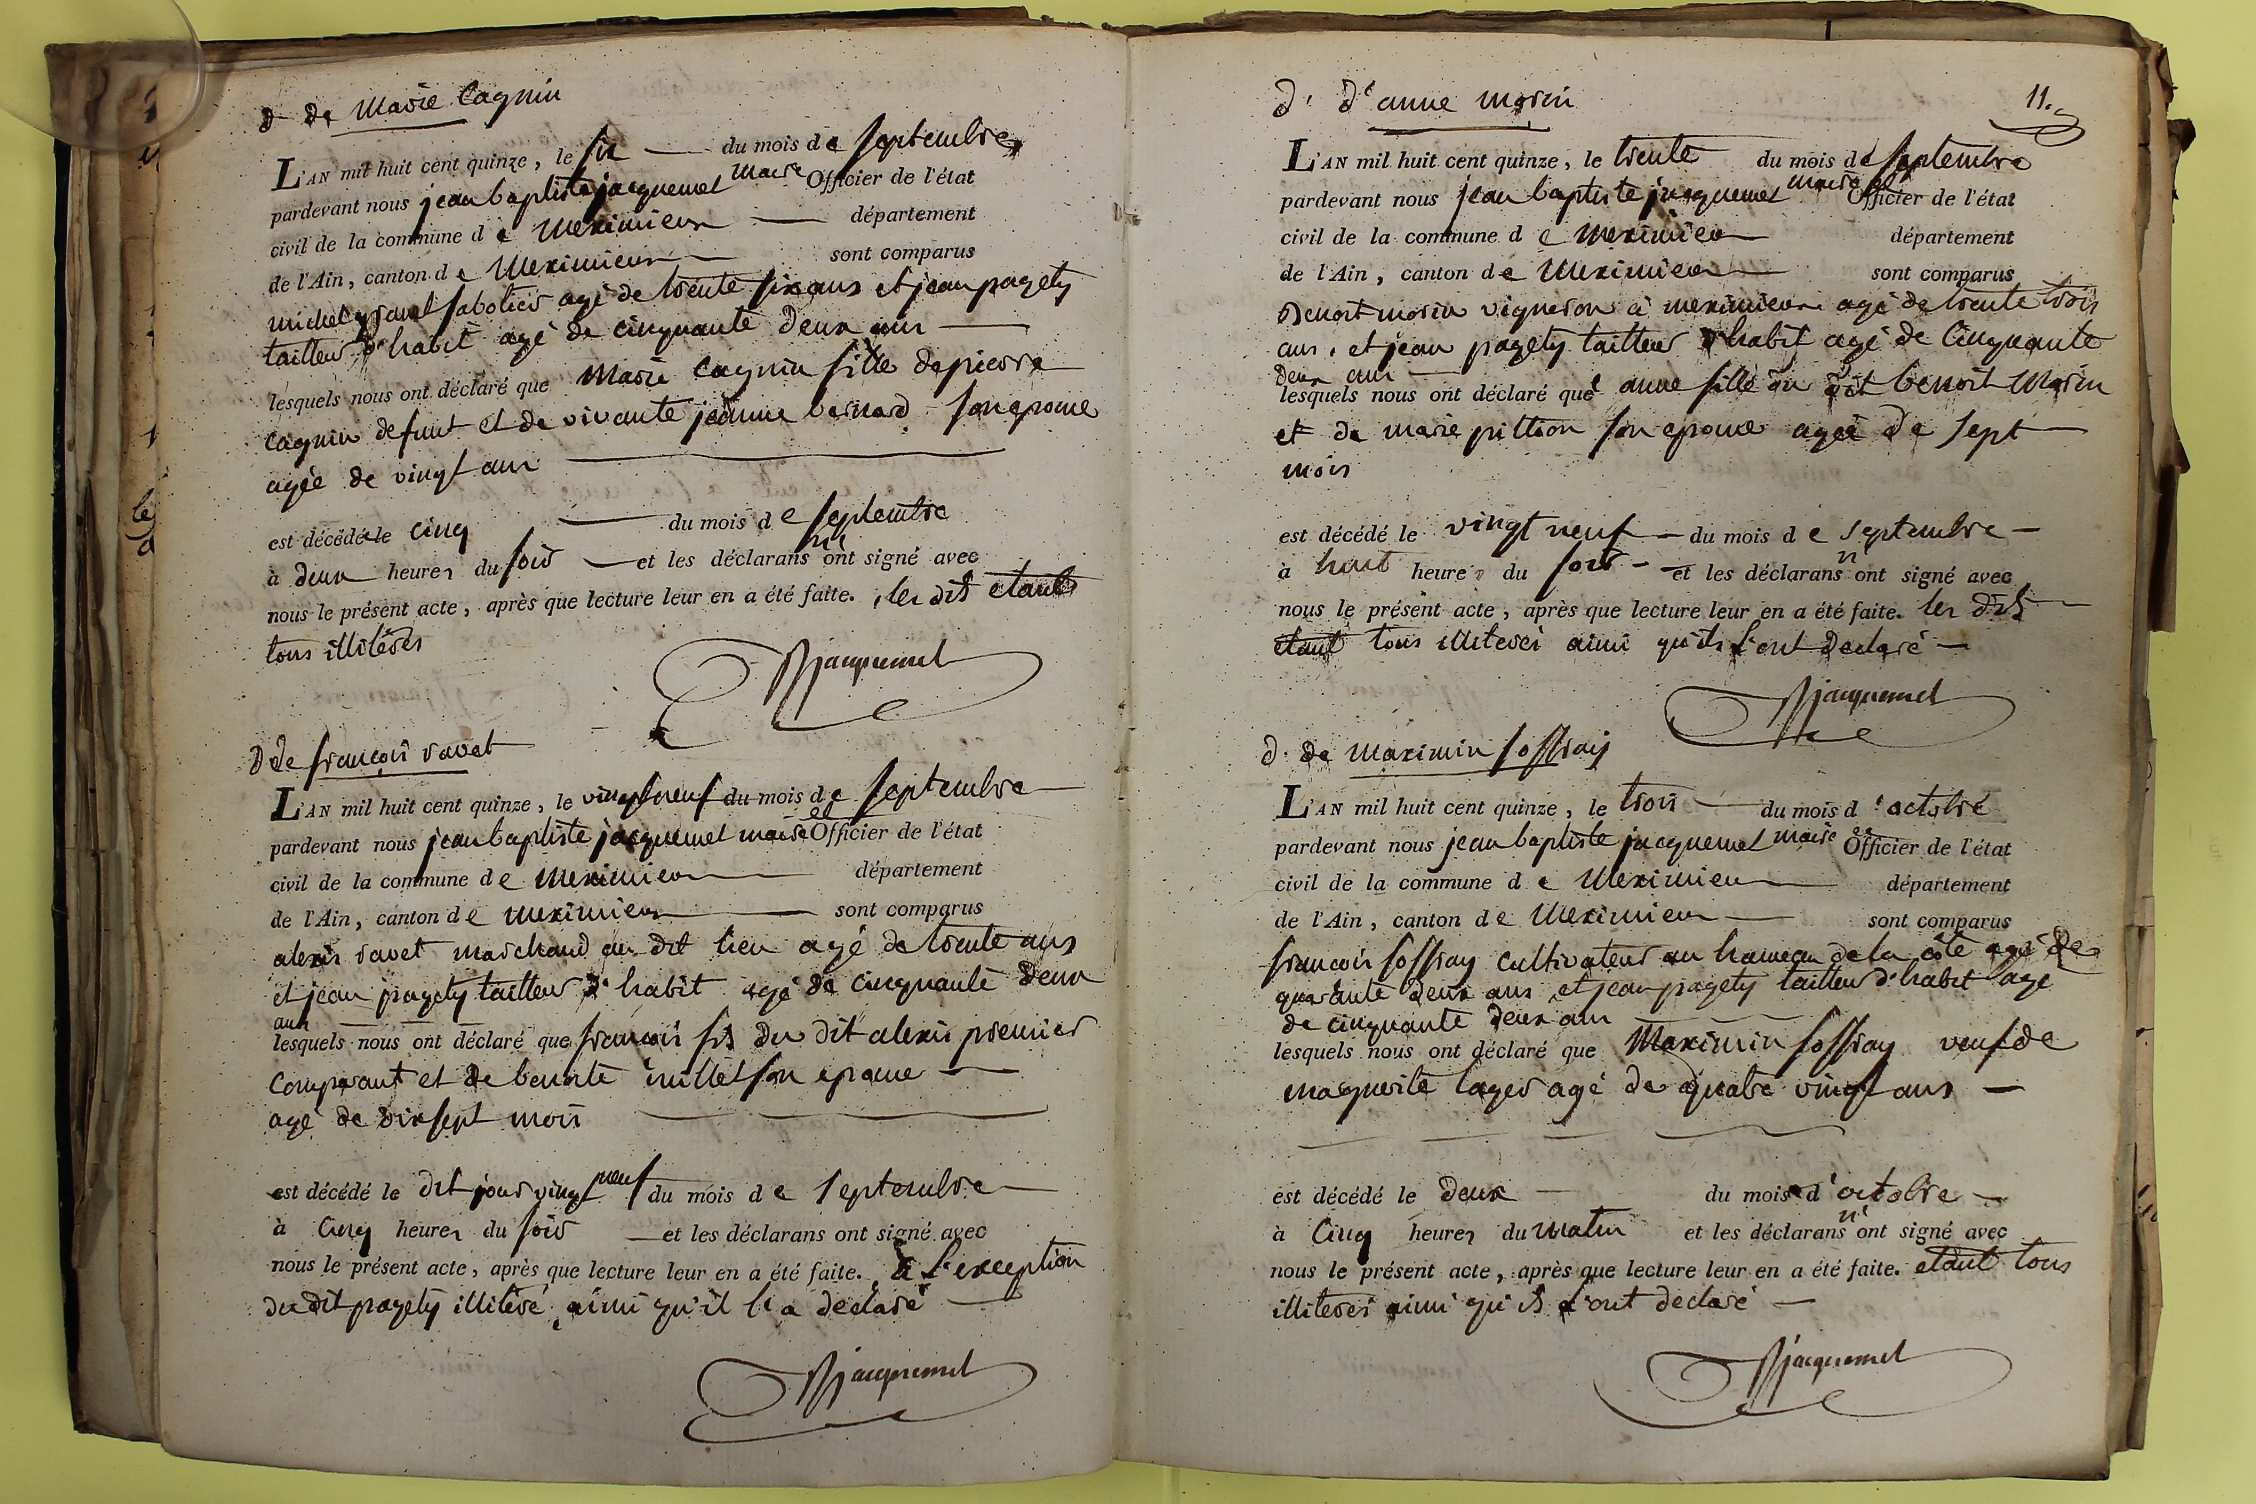 d de Marie Cagnin
L'AN mil huit cent quinze, le six du mois de septembre
pardevant nous jean baptiste jacquemet maire Officier de l'état
civil de la commune de Meximieux département
de l'Ain, canton de Meximieux sont comparus
michel sabotier agé de trente six ans et jean pagety
tailleur d'habit agé de cinquante deux ans
lesquels nous ont déclaré que Marie Cagnin fille de pierre
cagnin defunt et de vivante jeanne bernard son epouse
agée de vingt ans
est décédé le cinq du mois de septembre
à deux heures du soir et les déclarans n'ont signé avec
nous le présent acte, après que lecture leur en a été faite. les dits etants
tous illiterés
Bjacquemet
D de françois ravet
L'AN mil huit cent quinze, le vingt neuf du mois de septembre
pardevant nous jean baptiste jacquemet maire et Officier de l'état
civil de la commune de Meximieux département
de l'Ain, canton de Meximieux sont comparus
alexis ravet marchand au dit lieu agé de trente ans
et jean pagety tailleur d'habit agé de cinquante deux
ans
lesquels nous ont déclaré que françois fils du dit alexis premier
comparant et de benoite millet son epouse
agé de dix sept mois
est décédé le dit jour vingt neuf du mois de septembre
à cinq heures du soir et les déclarans ont signé avec
nous le présent acte, après que lecture leur en a été faite. à l'exception
du dit pagety illiteré ainsi qu'il l'a declaré
Bjacquemet
11.
d. d'anne morin
L'AN mil huit cent quinze, le trente du mois de septembre
pardevant nous jean baptiste jacquemet maire et Officier de l'état
civil de la commune de Meximieux département
de l'Ain, canton de Meximieux sont comparus
Benoit morin vigneron à meximieux agé de trente trois
ans, et jean pagety tailleur d'habit agé de Cinquante
deux ans
lesquels nous ont déclaré que anne fille du dit benoit Morin
et de marie pittion son epouse agée de sept
mois
est décédé le vingt neuf du mois de septembre
à huit heures du soir et les déclarans n'ont signé avec
nous le présent acte, après que lecture leur en a été faite. les dits
etant tous illiterés ainsi qu'ils l'ont declaré
Bjacquemet
d. de Maximin soffray
L'AN mil huit cent quinze, le trois du mois d'octobre
pardevant nous jean baptiste jacquemet maire et Officier de l'état
civil de la commune de Meximieux département
de l'Ain, canton de Meximieux sont comparus
françois soffray cultivateur au hameau de la côte agé de
quarante deux ans et jean pagety tailleur d'habit agé
de cinquante deux ans
lesquels nous ont déclaré que Maximin soffray veuf de
marguerite lager agé de quatre vingt ans
est décédé le deux du mois d'octobre
à cinq heures du matin et les déclarans n'ont signé avec
nous le présent acte, après que lecture leur en a été faite. etant tous
illiterés ainsi qu'ils l'ont declaré
Bjacquemet